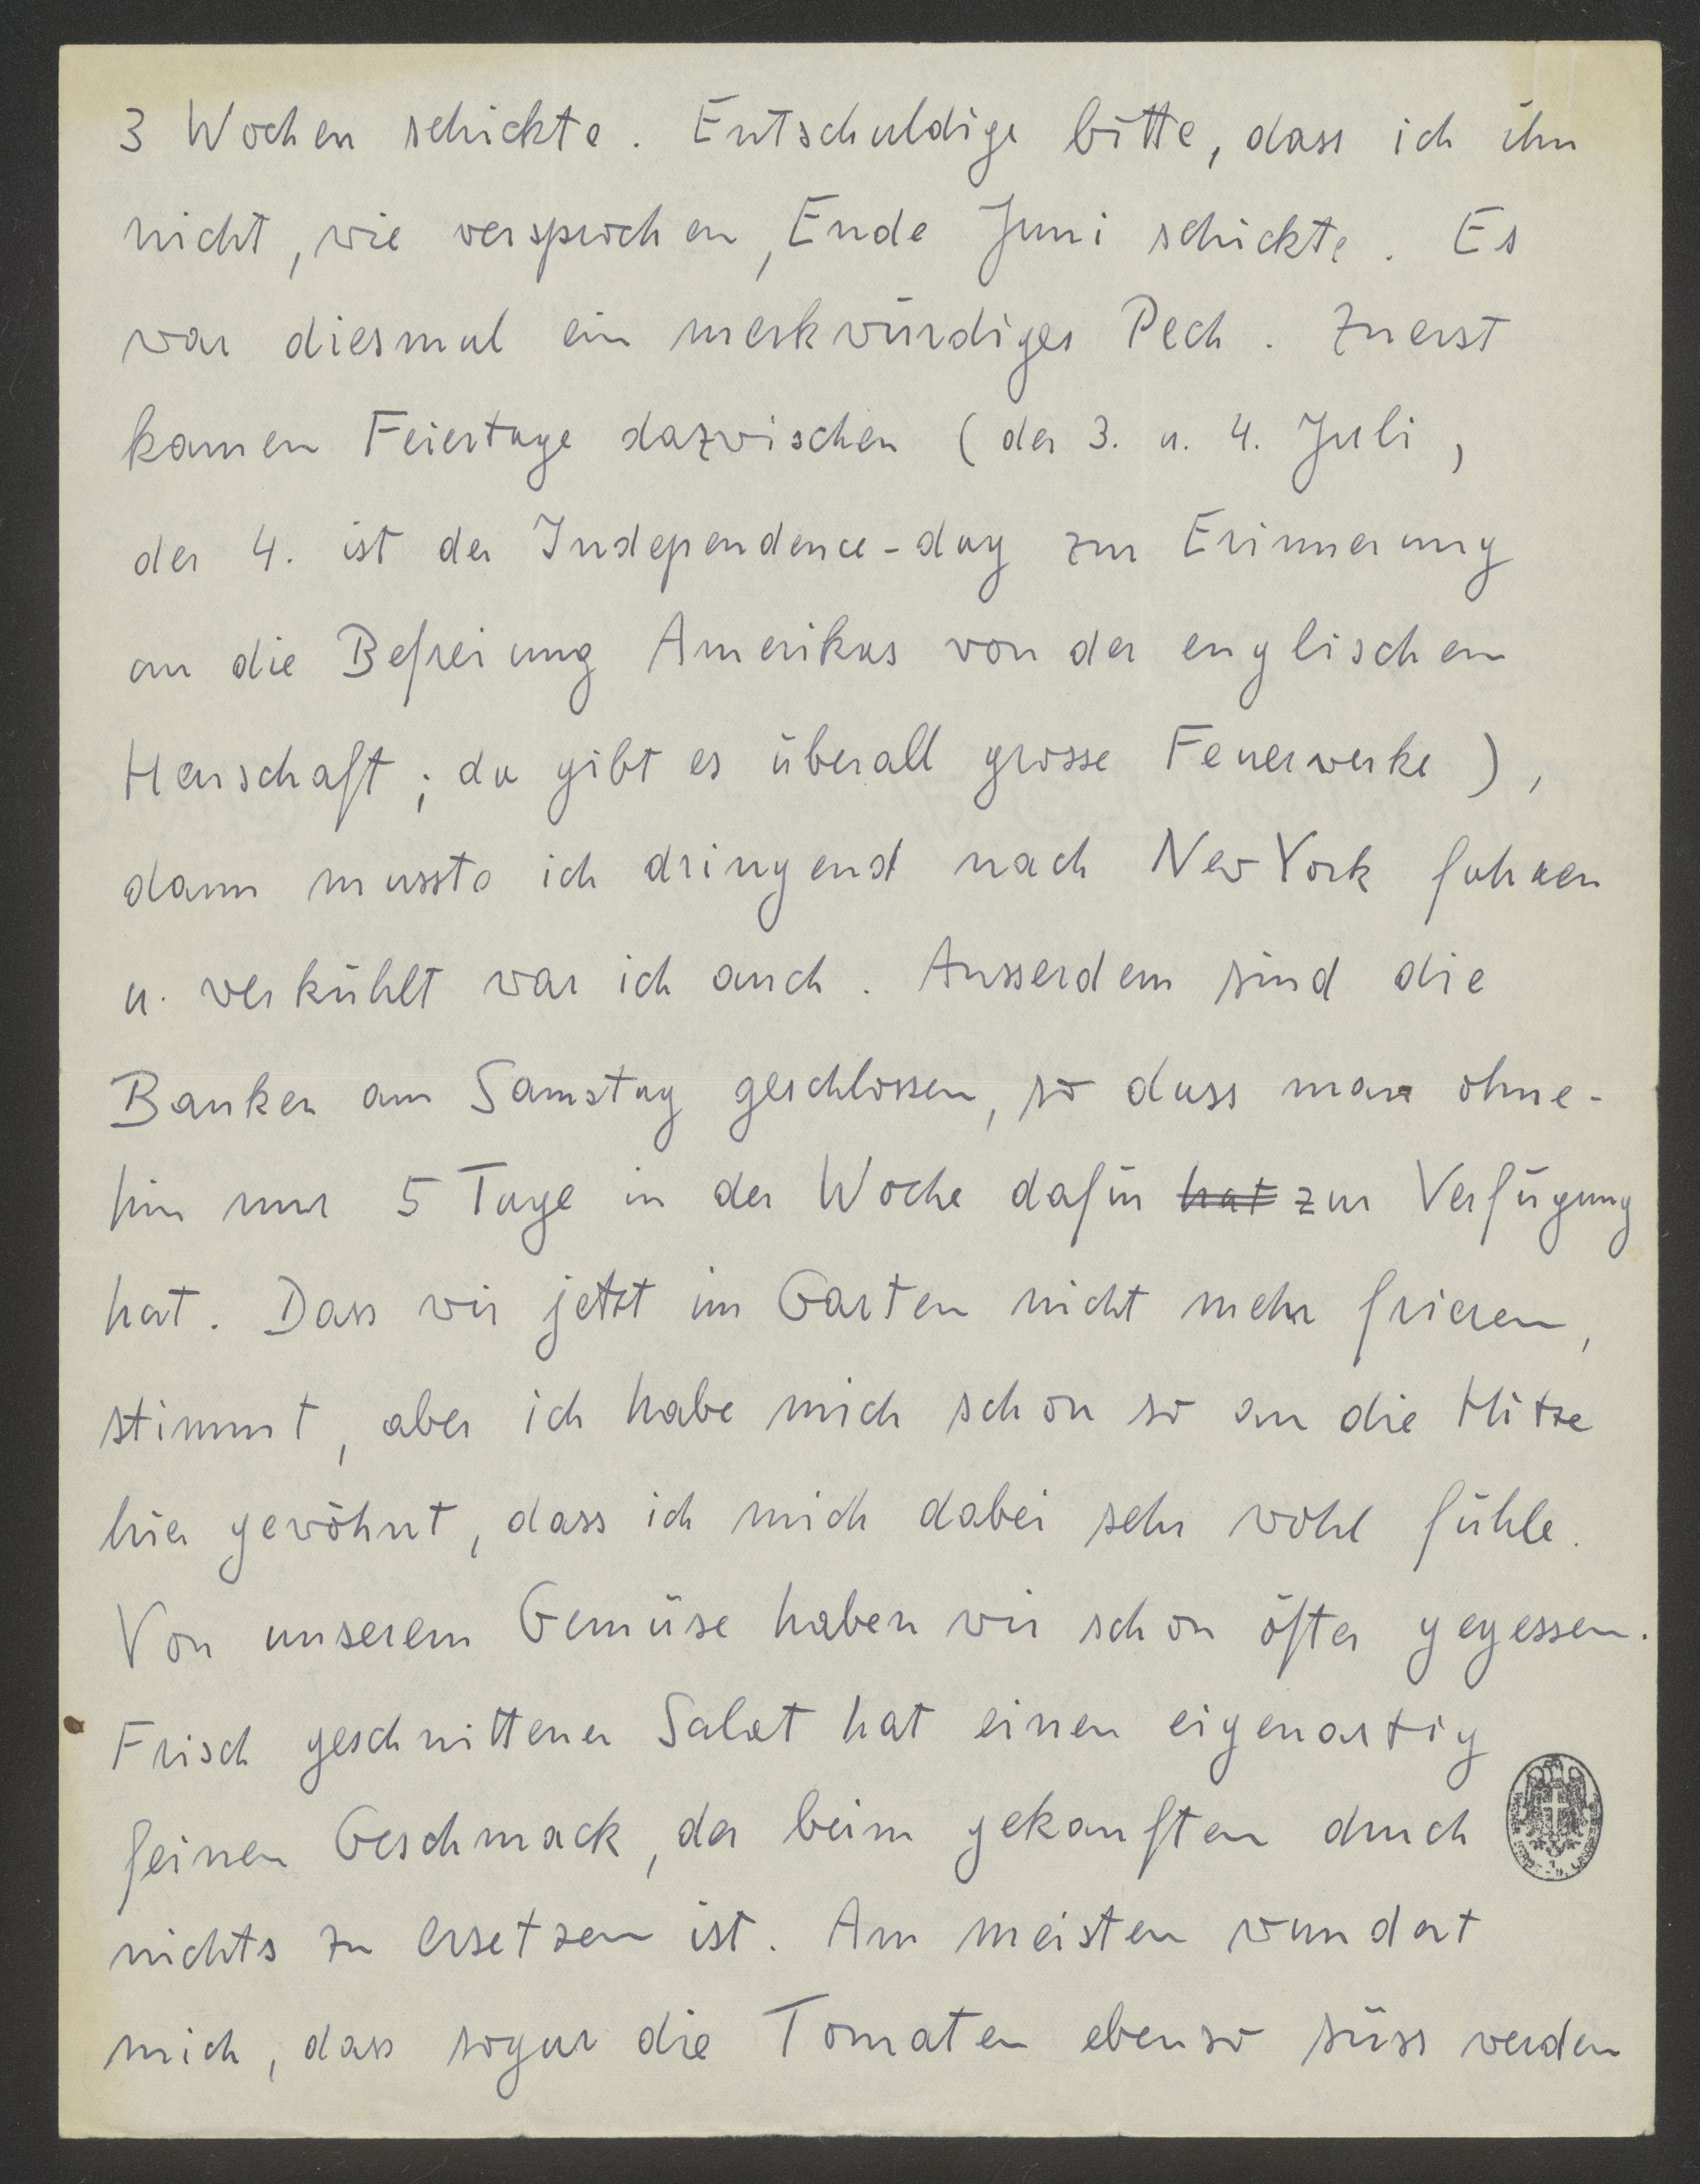 3 Wochen schickte. Entschuldige bitte, dass ich ihn
nicht, wie versprochen, Ende Juni schickte. Es
war diesmal ein merkwürdiges Pech. Zuerst
kamen Feiertage dazwischen (der 3. u. 4. Juli,
der 4. ist der Independence-day zur Erinnerung
an die Befreiung Amerikas von der englischen
Herrschaft; da gibt es überall grosse Feuerwerke),
dann musste ich dringend nach New York fahren
u. verkühlt war ich auch. Ausserdem sind die
Banken am Samstag geschlossen, so dass man ohne-
hin nur 5 Tage in der Woche dafür hat zur Verfügung
hat. Dass wir jetzt im Garten nicht mehr frieren,
stimmt, aber ich habe mich schon so an die Hitze
hier gewöhnt, dass ich mich dabei sehr wohl fühle.
Von unserem Gemüse haben wir schon öfter gegessen.
Frisch geschnittener Salat hat einen eigenartig
feinen Geschmack, der beim gekauften durch
nichts zu ersetzen ist. Am meisten wundert
mich, dass sogar die Tomaten ebenso süss werden